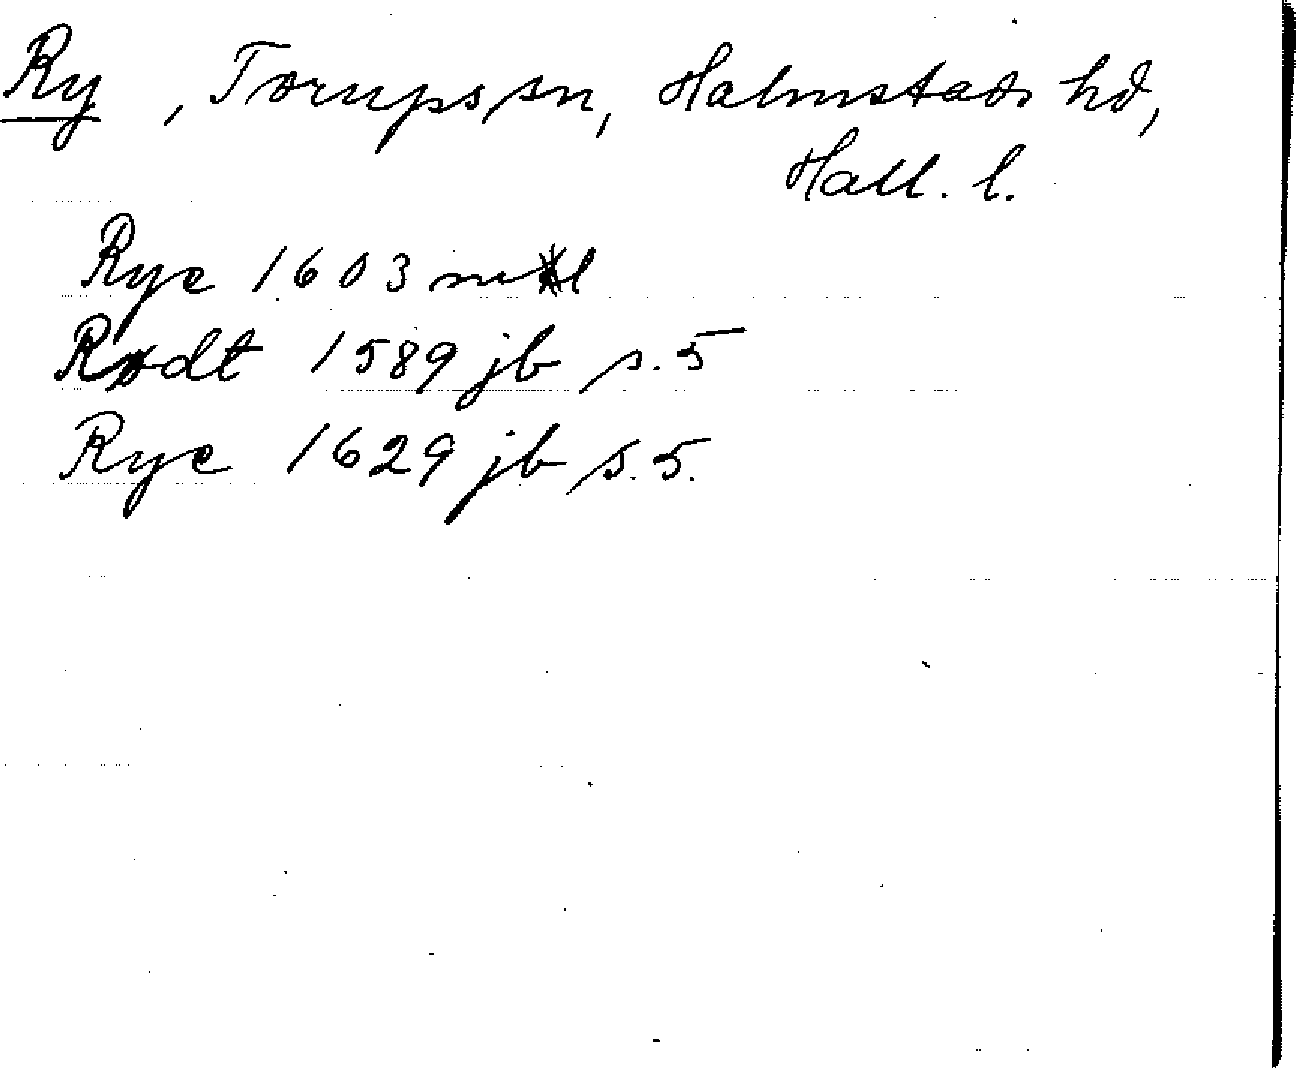 Ry, Torups sn, Halmstads hd,
Hall. l.
Rye 1603 mtl
Rødt 1589 jb s. 5
Rye 1629 jb s. 5.